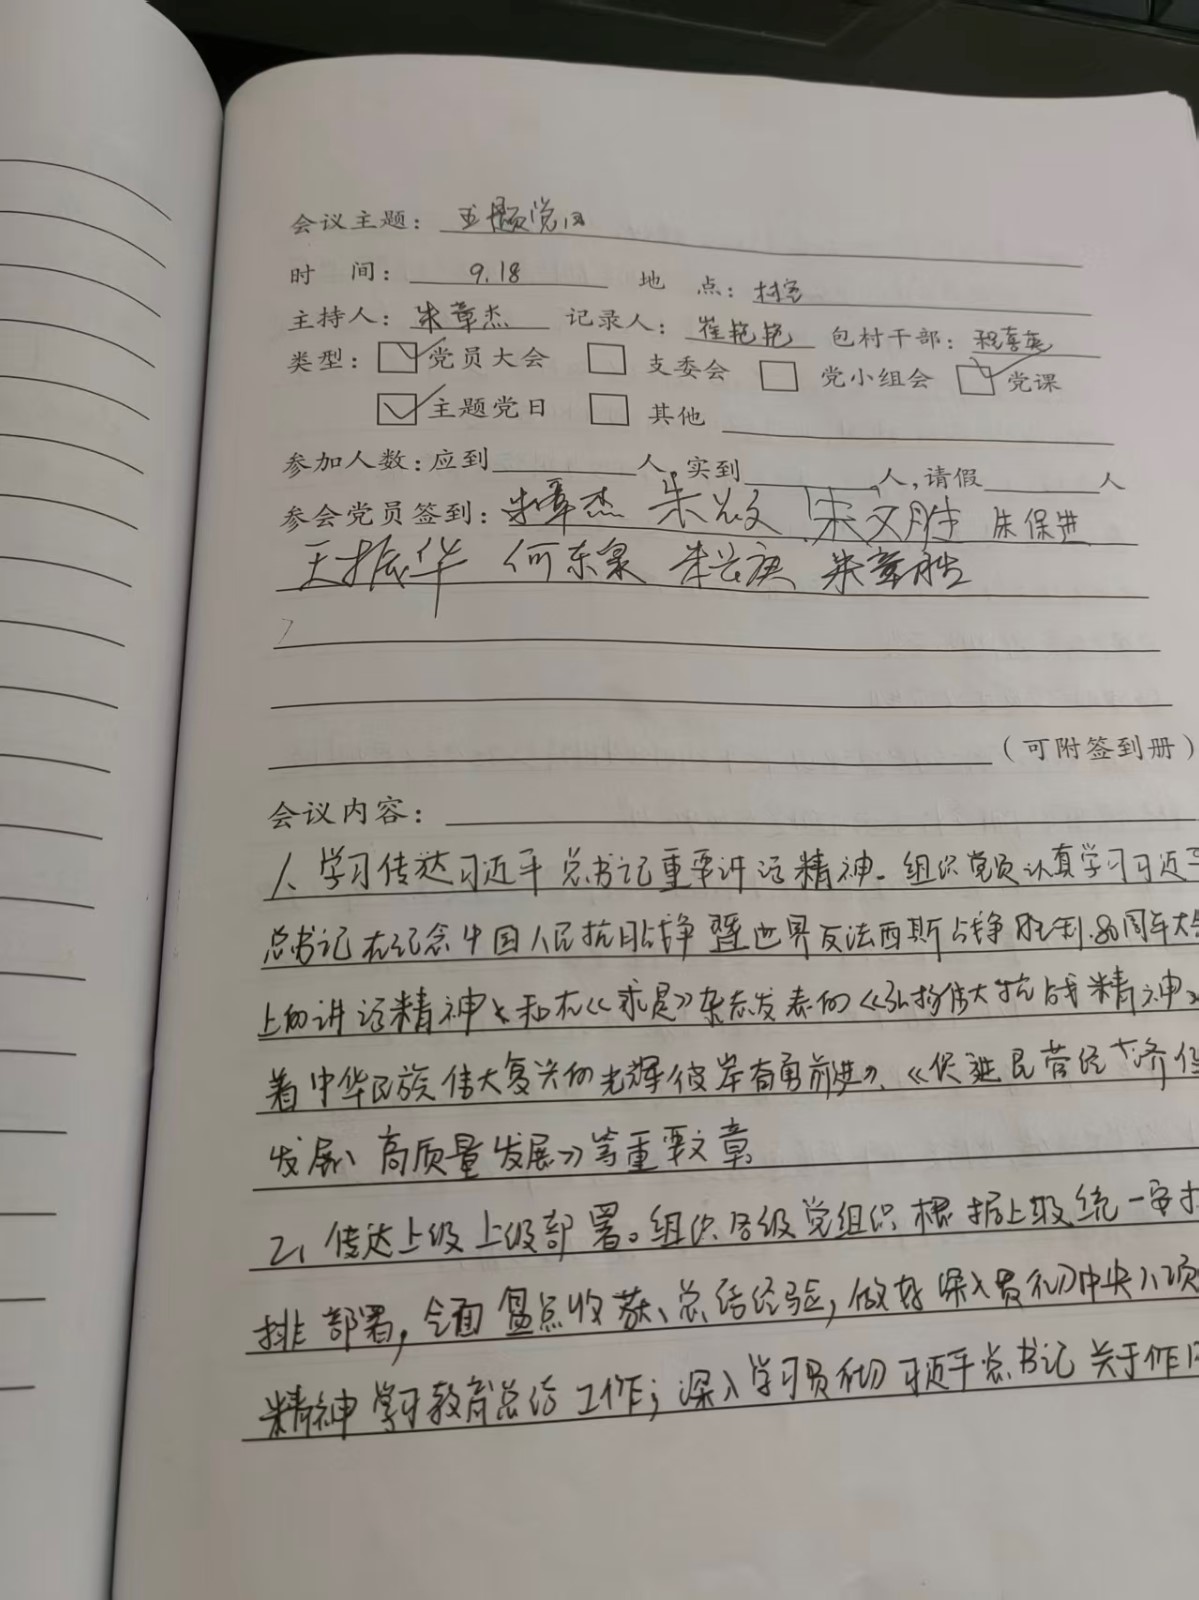 会议主题： 主题党日
时 间： 9.18 地 点： 村室
主持人： 朱章杰 记录人： 崔艳艳 包村干部： 程喜英
类型： ☑党员大会 □支委会 □党小组会 ☑党课
☑主题党日 □其他
参加人数：应到 人，实到 人，请假 人
参会党员签到： 朱章杰 朱 文 宋文胜 朱保进
王振华 何东泉 朱兴 朱章胜
（可附签到册）
会议内容：
1、学习传达习近平总书记重要讲话精神。组织党员认真学习习近平
总书记在纪念中国人民抗日战争暨世界反法西斯战争胜利80周年大会
上的讲话精神和在《求是》杂志发表的《弘扬伟大抗战精神，
着中华民族伟大复兴的光辉彼岸奋勇前进》、《促进民营经济健
发展、高质量发展》等重要文章
2、传达上级上级部署。组织各级党组织根据上级统一安排
排部署，全面盘点收获、总结经验，做好深入贯彻中央八项
精神学习教育总结工作；深入学习贯彻习近平总书记关于作风